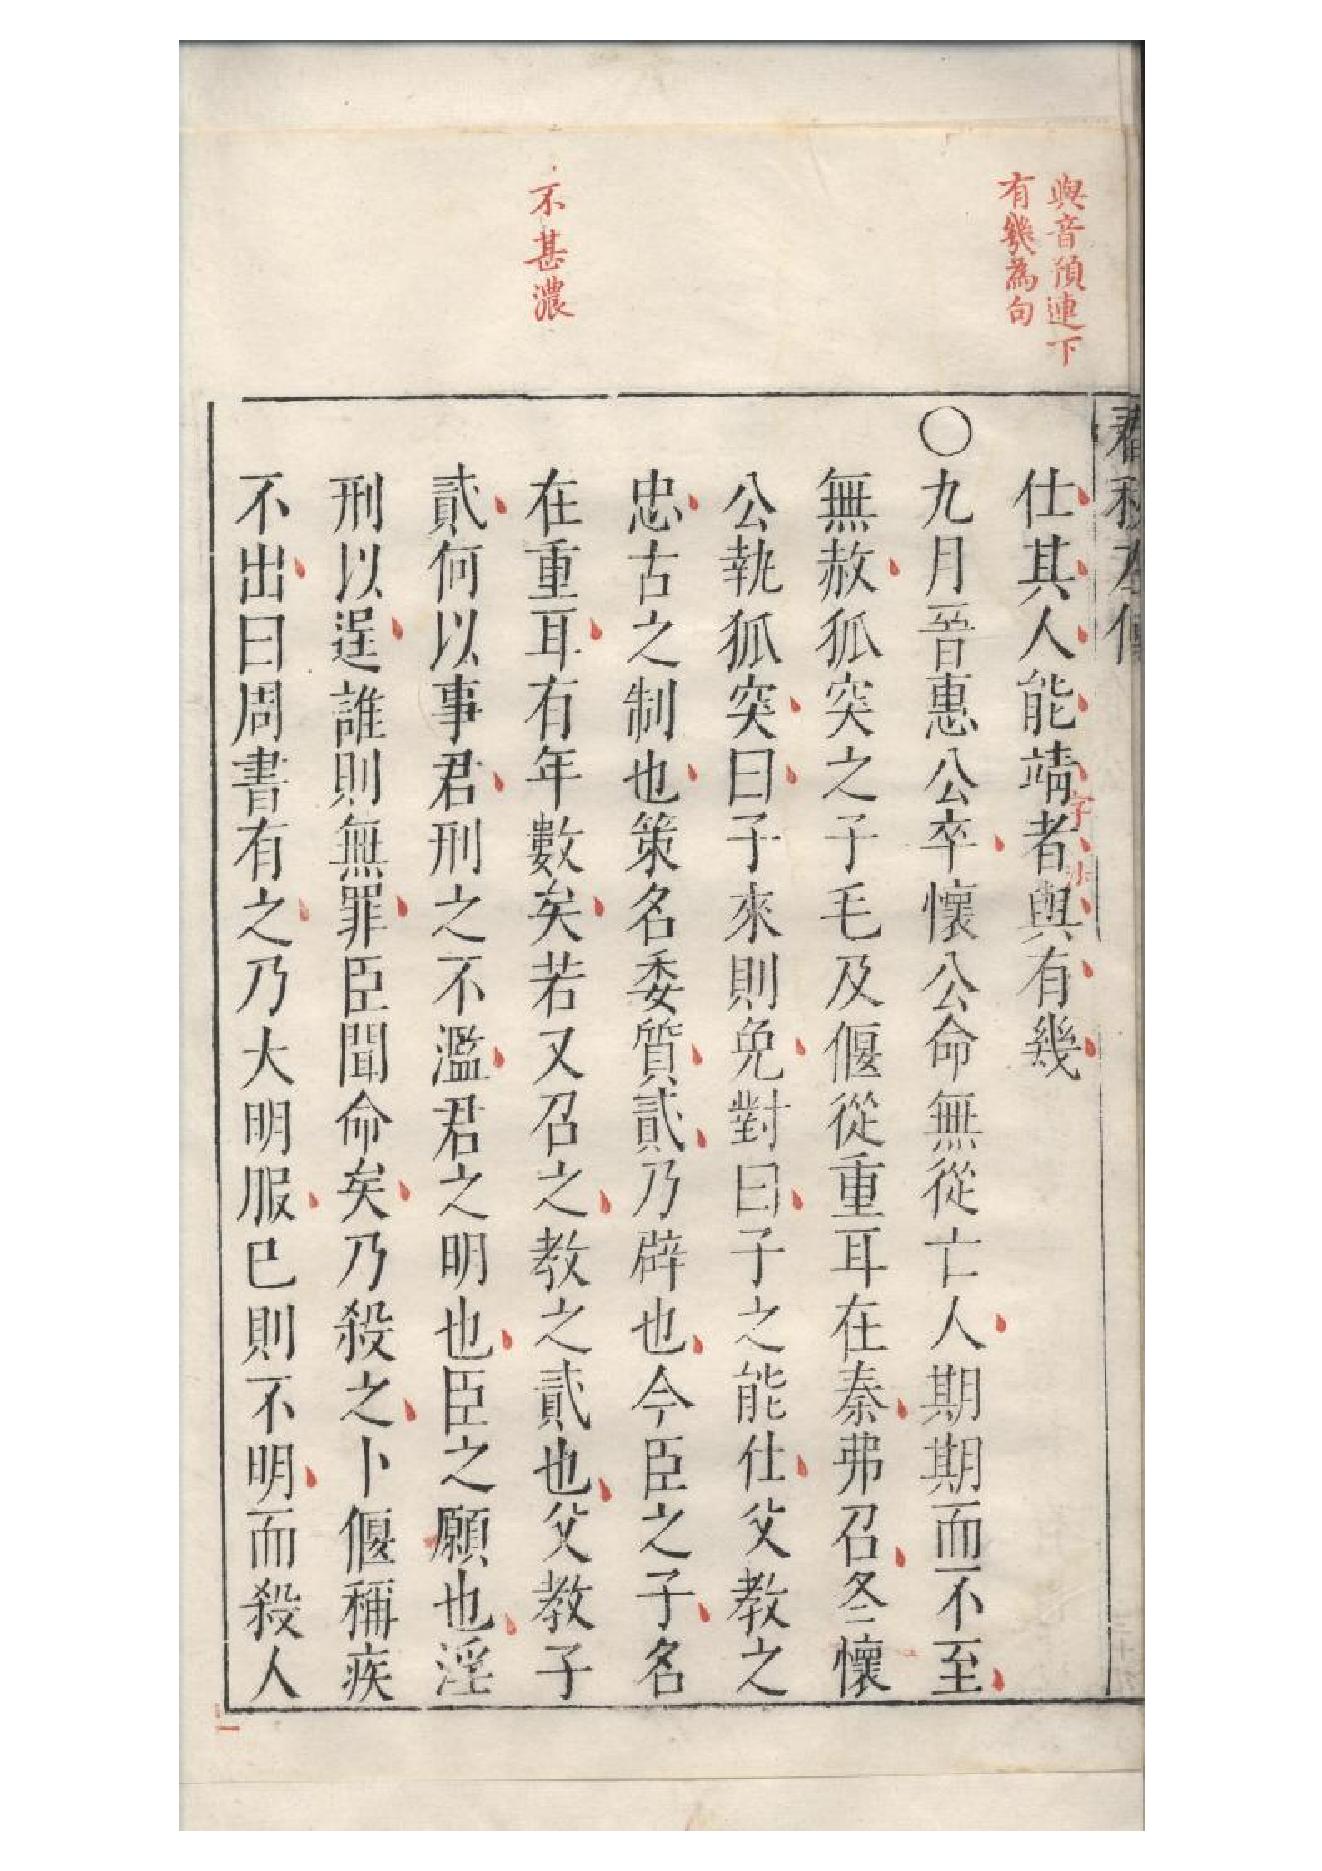 與音預連下
有幾為句
不甚濃
春秋左傳
仕其人能靖者與有幾
字法
〇九月晉惠公卒懷公命無從亡人期期而不至
無赦狐突之子毛及偃從重耳在秦弗召冬懷
公執狐突曰子來則免對曰子之能仕父教之
忠古之制也策名委質貳乃辟也今臣之子名
在重耳有年數矣若又召之教之貳也父教子
貳何以事君刑之不濫君之明也臣之願也淫
刑以逞誰則無罪臣聞命矣乃殺之卜偃稱疾
不出曰周書有之乃大明服已則不明而殺人